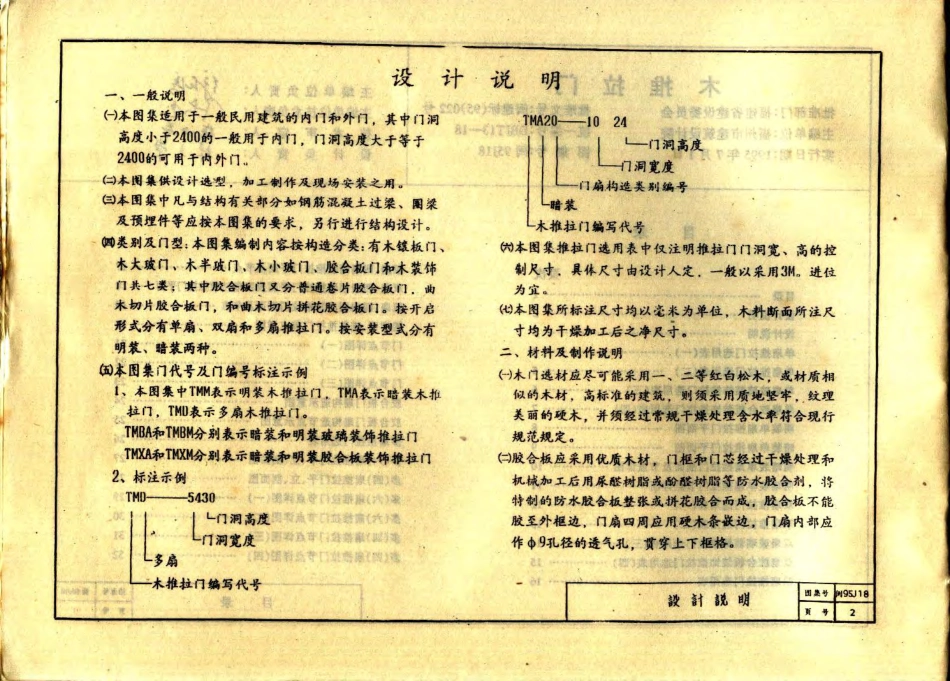 设计说明
一、一般说明
㈠本图集适用于一般民用建筑的内门和外门，其中门洞
高度小于2400的一般用于内门，门洞高度大于等于
2400的可用于内外门。
㈡本图集供设计选型，加工制作及现场安装之用。
㈢本图集中凡与结构有关部分如钢筋混凝土过梁、圈梁
及预埋件等应按本图集的要求，另行进行结构设计。
㈣类别及门型：本图集编制内容按构造分类：有木镶板门、
木大玻门、木半玻门、木小玻门、胶合板门和木装饰
门共七类；其中胶合板门又分普通卷片胶合板门，曲
木切片胶合板门，和曲木切片拼花胶合板门。按开启
形式分有单扇、双扇和多扇推拉门。按安装型式分有
明装、暗装两种。
㈤本图集门代号及门编号标注示例
1、本图集中TMM表示明装木推拉门，TMA表示暗装木推
拉门，TMD表示多扇木推拉门。
TMBA和TMBM分别表示暗装和明装玻璃装饰推拉门
TMXA和TMXM分别表示暗装和明装胶合板装饰推拉门
2、标注示例
TMD——5430
门洞高度
门洞宽度
多扇
木推拉门编写代号
TMA20——10 24
门洞高度
门洞宽度
门扇构造类别编号
暗装
木推拉门编写代号
㈥本图集推拉门选用表中仅注明推拉门门洞宽、高的控
制尺寸．具体尺寸由设计人定．一般以采用3M。进位
为宜。
㈦本图集所标注尺寸均以毫米为单位，木料断面所注尺
寸均为干燥加工后之净尺寸。
二、材料及制作说明
㈠木门选材应尽可能采用一、二等红白松木，或材质相
似的木材，高标准的建筑，则须采用质地坚牢，纹理
美丽的硬木，并须经过常规干燥处理含水率符合现行
规范规定。
㈡胶合板应采用优质木材，门框和门芯经过干燥处理和
机械加工后用尿醛树脂或酚醛树脂等防水胶合剂，将
特制的防水胶合板整张或拼花胶合而成，胶合板不能
胶至外框边，门扇四周应用硬木条嵌边，门扇内部应
作φ9孔径的透气孔，贯穿上下框格。
設計説明
图集号 闽95J18
页号 2